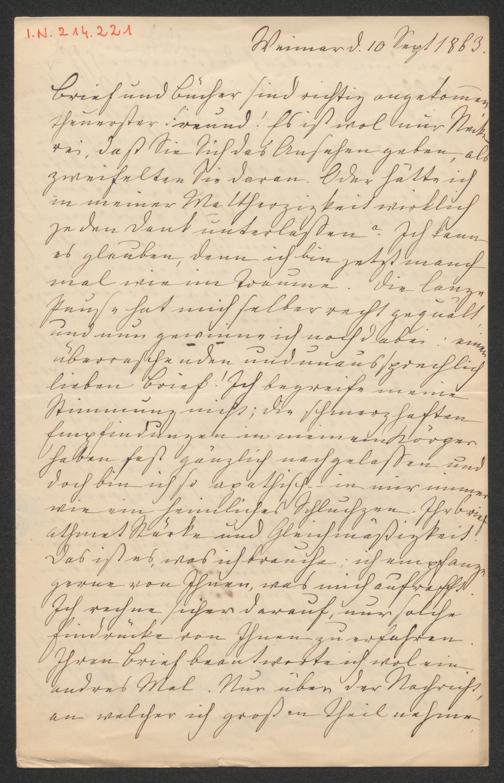 I.N. 214.221
Weimar d. 10 Sept 1863.
Brief und Bücher sind richtig angekommen
theuerster Freund! Es ist wol nur Necke
rei, daß Sie Sich das Ansehen geben, als
zweifelten Sie daran. Oder hätte ich
in meiner Mattherzigkeit wirklich
jeden Dank unterlassen? Ich kann
es glauben, denn ich bin jetzt manch
mal wie im Traume. Die lange
Pause hat mich selber recht gequält
und nun gewinne ich noch dabei: einen
überraschenden und unaussprechlich
lieben Brief! Ich begreife meine
Stimmung nicht; die schmerzhaften
Empfindungen in meinem Körper
haben fast gänzlich nachgelassen und
doch bin ich so apathisch – in mir immer
wie ein heimliches Schluchzen. Ihr Brief
athmet Stärke und Gleichmäßigkeit
das ist es, was ich brauche; ich empfange
gerne von Ihnen, was mich aufrecht
Ich rechne sicher darauf, nur solche
Eindrücke von Ihnen zu erfahren.
Ihren Brief beantworte ich wol ein
andres Mal. Nur über der Nachricht,
an welcher ich großen Theil nehme